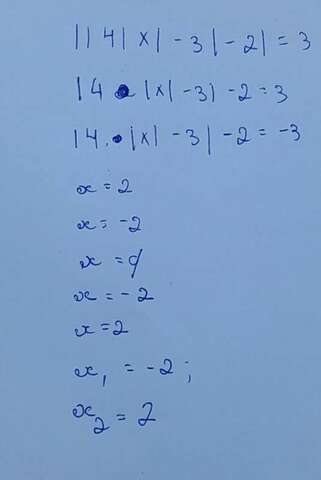 ||4|x|-3|-2|=3
|4·|x|-3|-2=3
|4·|x|-3|-2=-3
x=2
x=-2
x=∅
x=-2
x=2
x₁=-2;
x₂=2